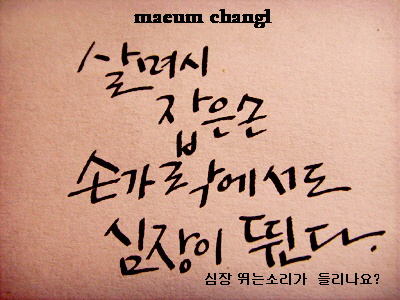 maeum changl
살며시
잡은손
손가락에서도
심장이 뛴다.
심장 뛰는소리가 들리나요?